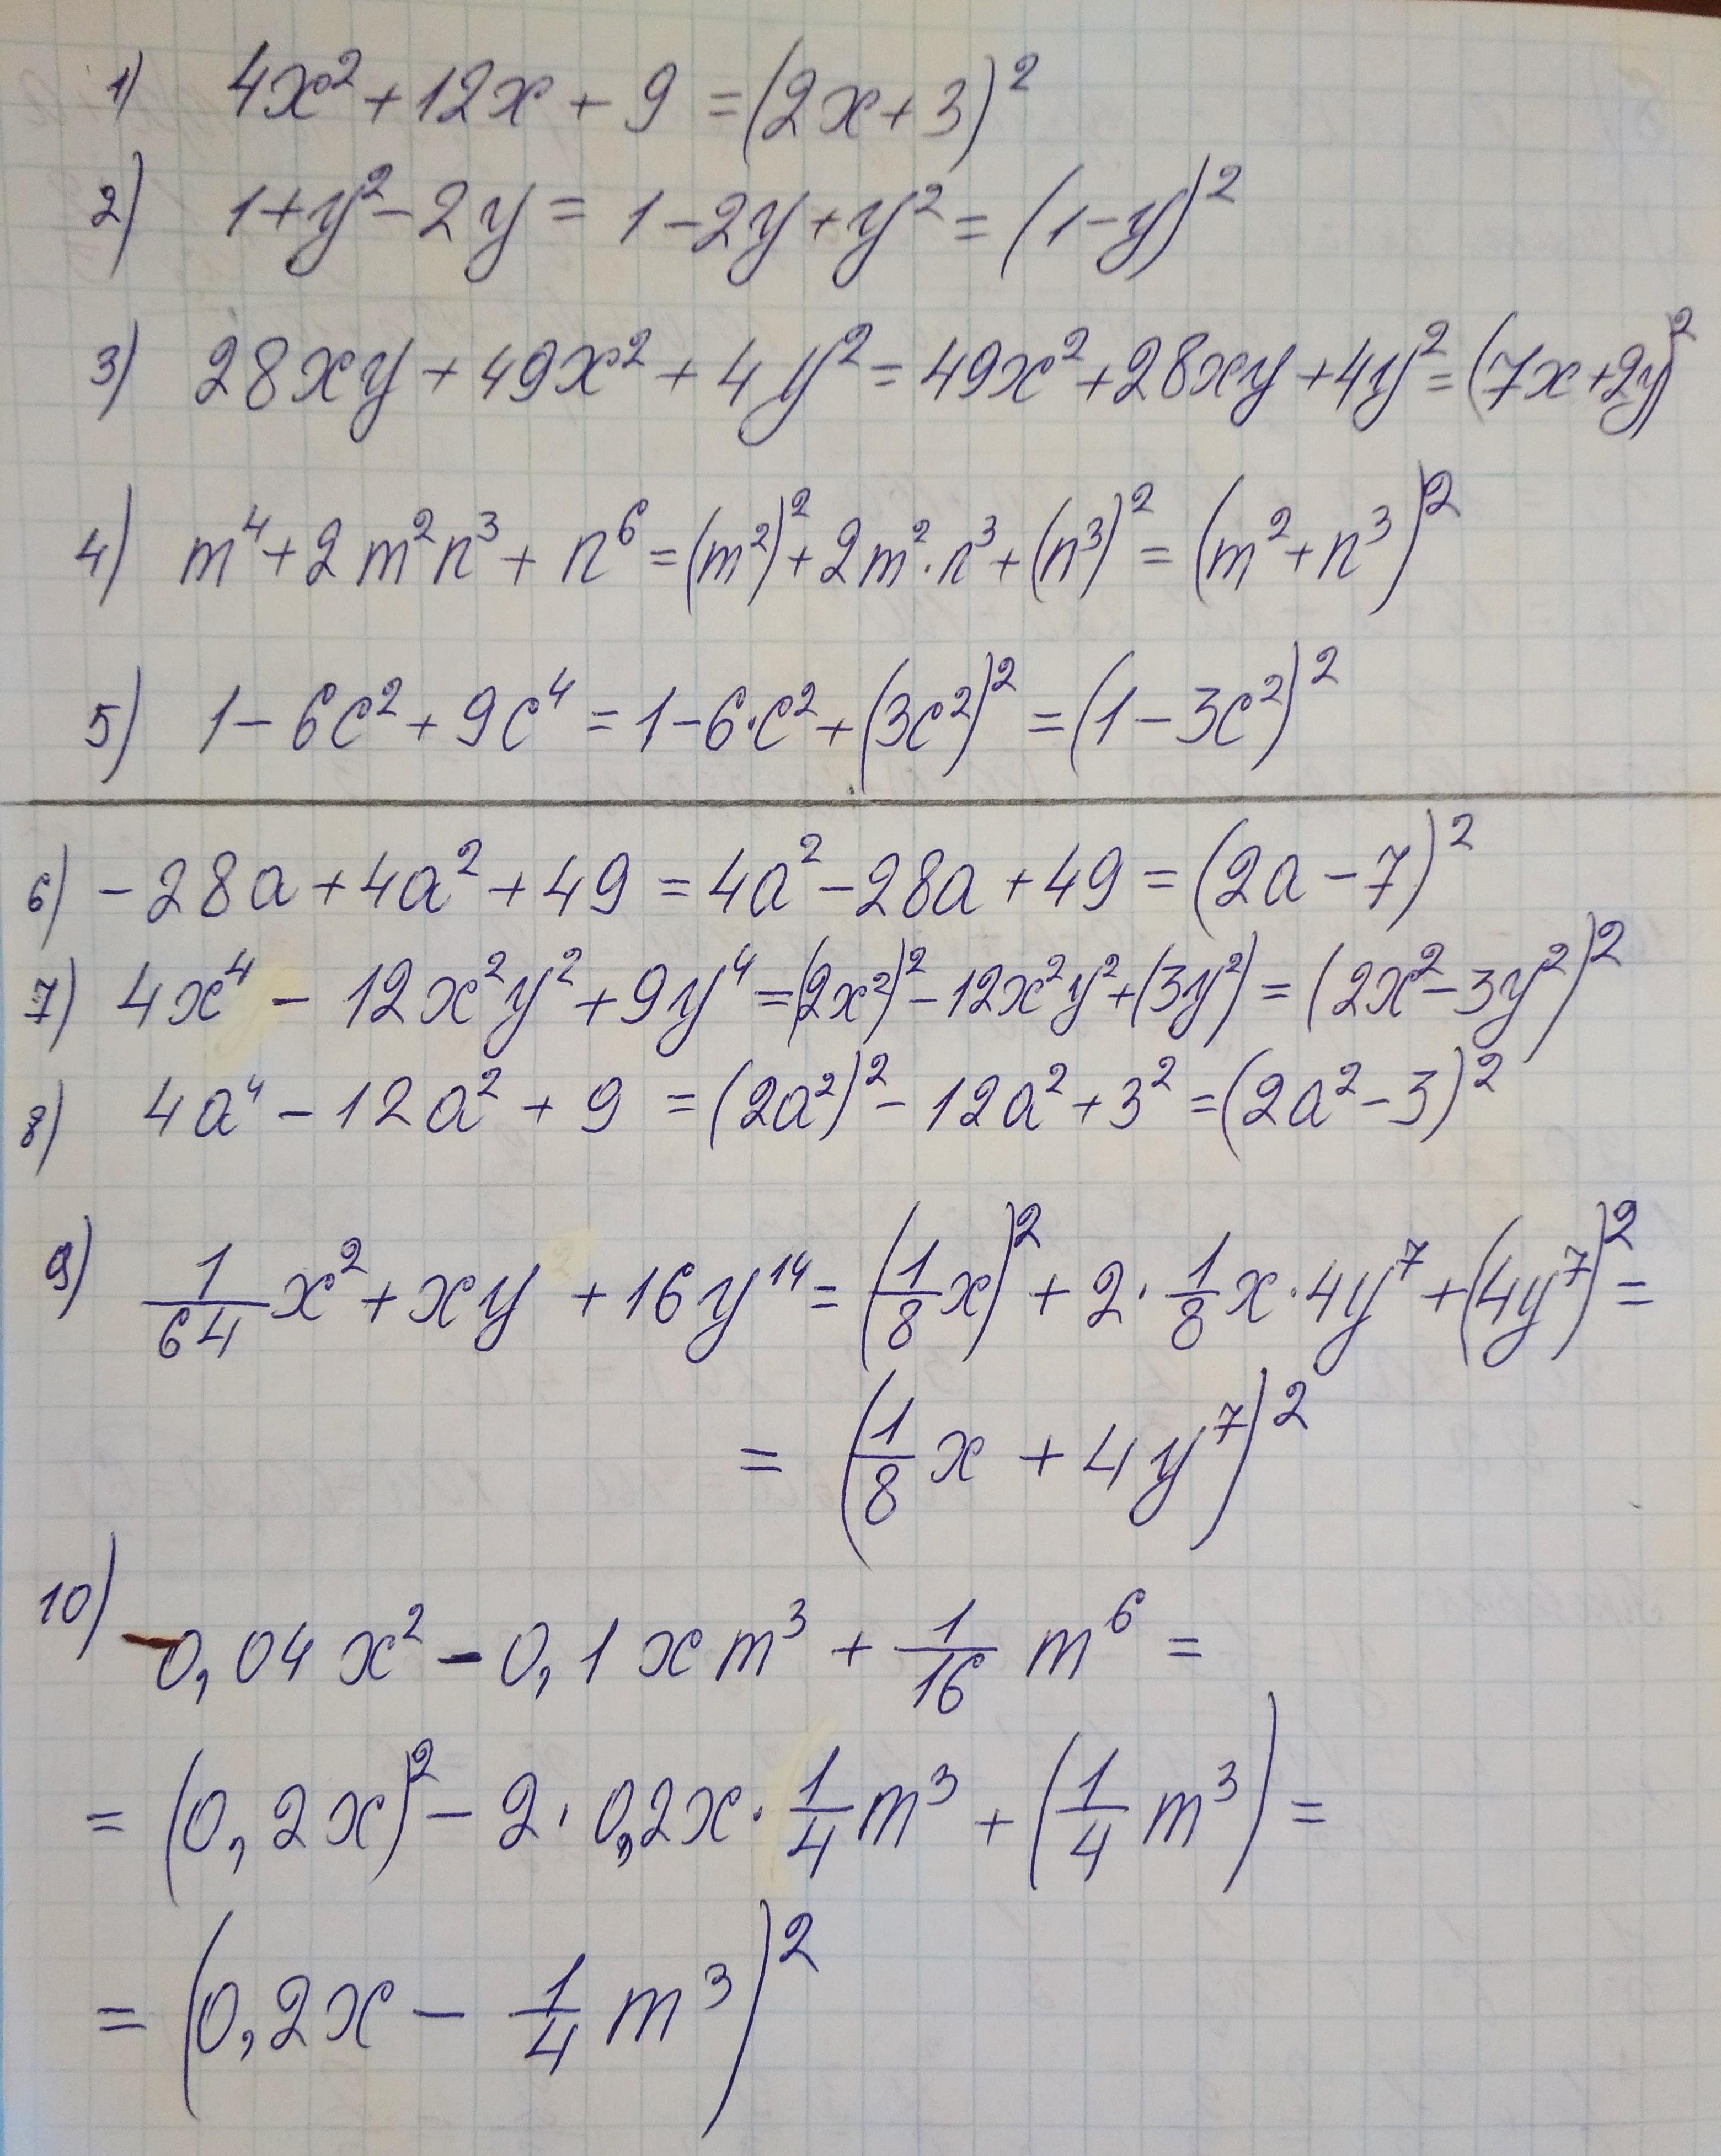 1) 4x² + 12x + 9 = (2x + 3)²
2) 1 + y² - 2y = 1 - 2y + y² = (1 - y)²
3) 28xy + 49x² + 4y² = 49x² + 28xy + 4y² = (7x + 2y)²
4) m⁴ + 2m²n³ + n⁶ = (m²)² + 2m² · n³ + (n³)² = (m² + n³)²
5) 1 - 6c² + 9c⁴ = 1 - 6·c² + (3c²)² = (1 - 3c²)²
6) -28a + 4a² + 49 = 4a² - 28a + 49 = (2a - 7)²
7) 4x⁴ - 12x²y² + 9y⁴ = (2x²)² - 12x²y² + (3y²) = (2x² - 3y²)²
8) 4a⁴ - 12a² + 9 = (2a²)² - 12a² + 3² = (2a² - 3)²
9) 1/64 x² + xy + 16y¹⁴ = (1/8 x)² + 2 · 1/8 x · 4y⁷ + (4y⁷)² =
= (1/8 x + 4y⁷)²
10) -0,04x² - 0,1xm³ + 1/16 m⁶ =
= (0,2x)² - 2 · 0,2x · 1/4 m³ + (1/4 m³) =
= (0,2x - 1/4 m³)²